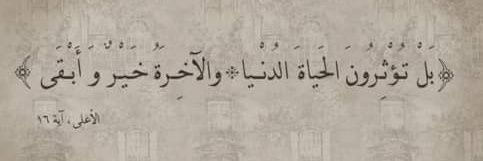 ﴿بَلْ تُؤْثِرُونَ الْحَيَاةَ الدُّنْيَا * وَالْآخِرَةُ خَيْرٌ وَ أَبْقَى﴾
الأعلى، آية ١٦